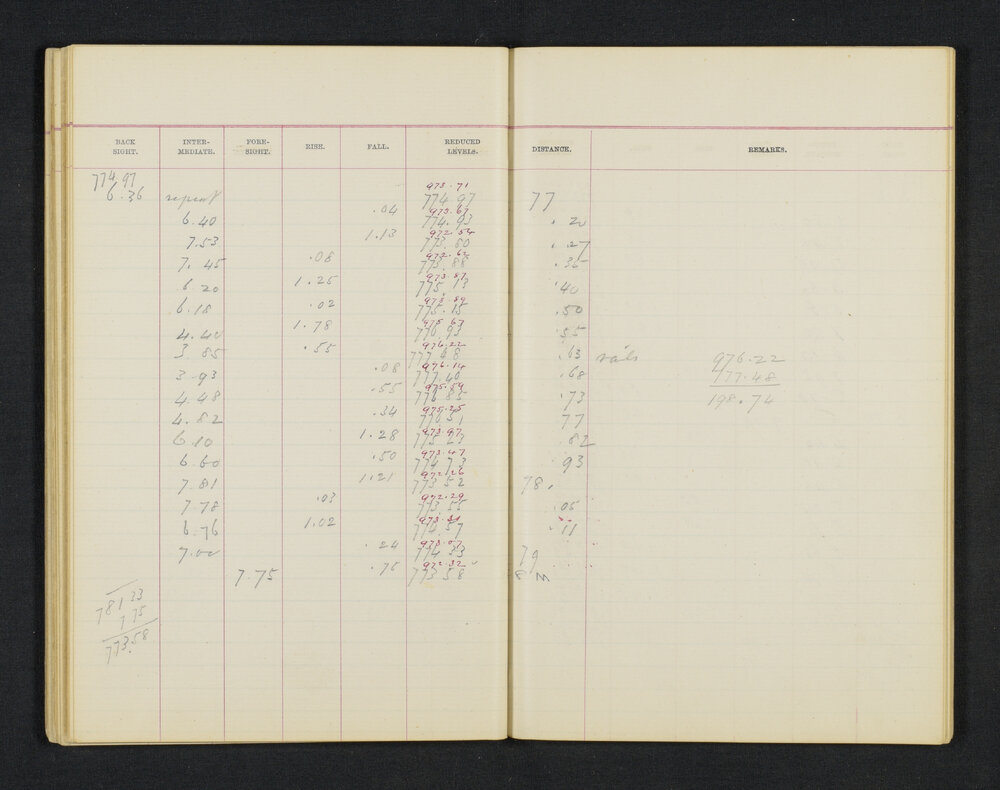 BACK SIGHT. INTER-MEDIATE. FORE-SIGHT. RISE. FALL. REDUCED LEVELS. DISTANCE. REMARKS.
774.97 973.71
6.36 repeat 774.97 77
.04 973.67
6.40 774.93 .20
1.13 972.54
7.53 773.80 .27
.08 972.62
7.45 773.88 .35
1.25 973.87
6.20 775.13 .40
.02 973.89
6.18 775.15 .50
1.78 975.67
4.40 776.93 .55
.55 976.22
3.85 777.48 .63 rails 976.22
.08 976.14 777.48
3.93 777.40 .68 198.74
.55 975.59
4.48 776.85 .73
.34 975.25
4.82 776.51 77
1.28 973.97
6.10 775.23 .82
.50 973.47
6.60 774.73 93
1.21 972.26
7.81 773.52 78.
.03 972.29
7.78 773.55 .05
1.02 973.31
6.76 774.57 .11
.24 973.07
7.00 774.33 79
.75 972.32
7.75 773.58 8 M
781.33
7.75
773.58